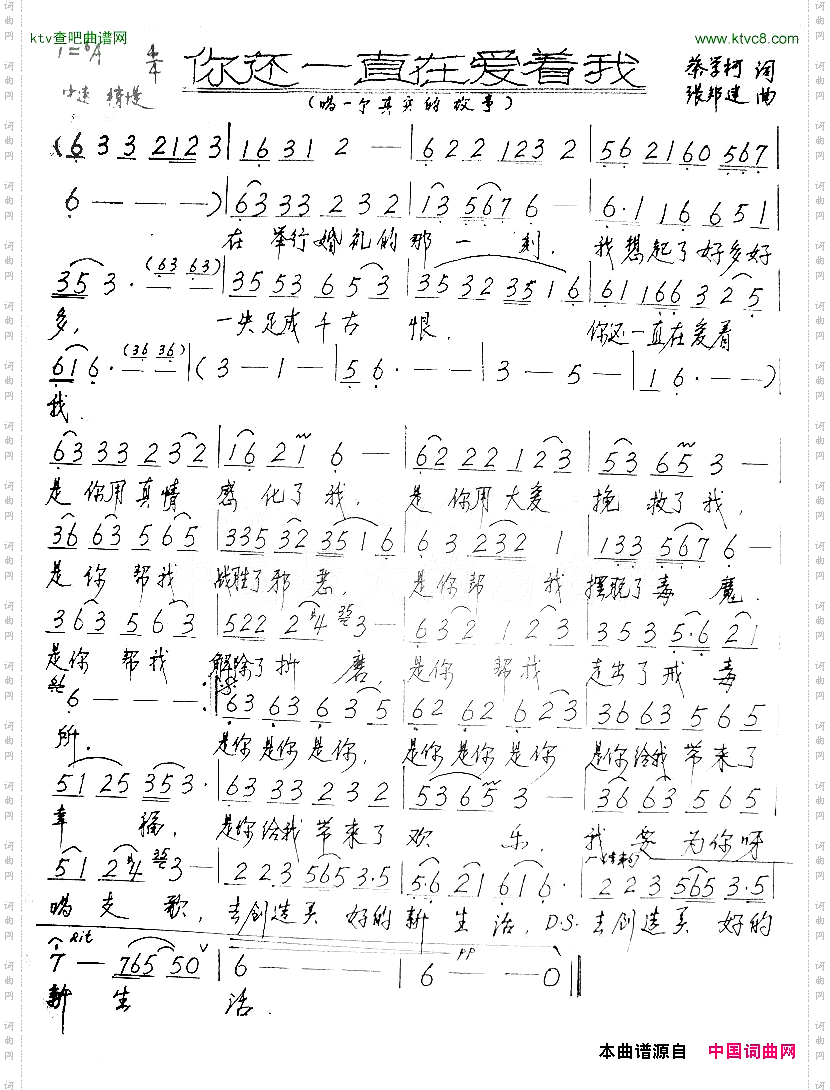 ktv查吧曲谱网
www.ktvc8.com
1=♭A 4/4
你还一直在爱着我
蔡学柯 词
中速 稍慢
(唱一个真实的故事)
张邦建 曲
(6 3 3 2123 | 16 31 2 — | 622 123 2 | 56 2160 567
6 — — —) | 63 33 232 | 13 567 6 — | 6·1 16 651
在 举行婚礼的那一刻. 我想起了好多好
353·(63 63) | 35 53 653 | 35 32 3516 | 61 166 32·5
多, 一失足成千古恨. 你还一直在爱着
616·(36 36) | (3 — 1 — | 56· — — | 3 — 5 — | 16· — —)
我.
63 33 232 | 16 21 6 — | 62 22 123 | 53 65 3 —
是你用真情 感化了我, 是你用大爱 挽救了我,
36 63 565 | 335 32 3516 | 63 232 1 | 133 567 6 —
是你帮我 战胜了邪恶, 是你帮我 摆脱了毒魔.
363 563 | 522 24 3 — | 632 123 | 353 5·6 21
是你帮我 解除了折磨, 是你帮我 走出了戒毒
6 — — — | 63 63 6 35 | 62 62 623 | 36 63 565
所. 是你是你是你, 是你是你是你 是你给我带来了
51 25 353· | 63 33 232 | 53 65 3 — | 36 63 565
幸福, 是你给我带来了欢乐. 我要为你呀
51 24 3 — | 223 565 3·5 | 5·6 21 616· | 223 565 3·5
唱支歌, 去创造美好的新生活, D.S. 去创造美好的
Rit
pp
7 — 765 50 | 6 — — — | 6 — — 0
新生活.
本曲谱源自 中国词曲网
词曲网